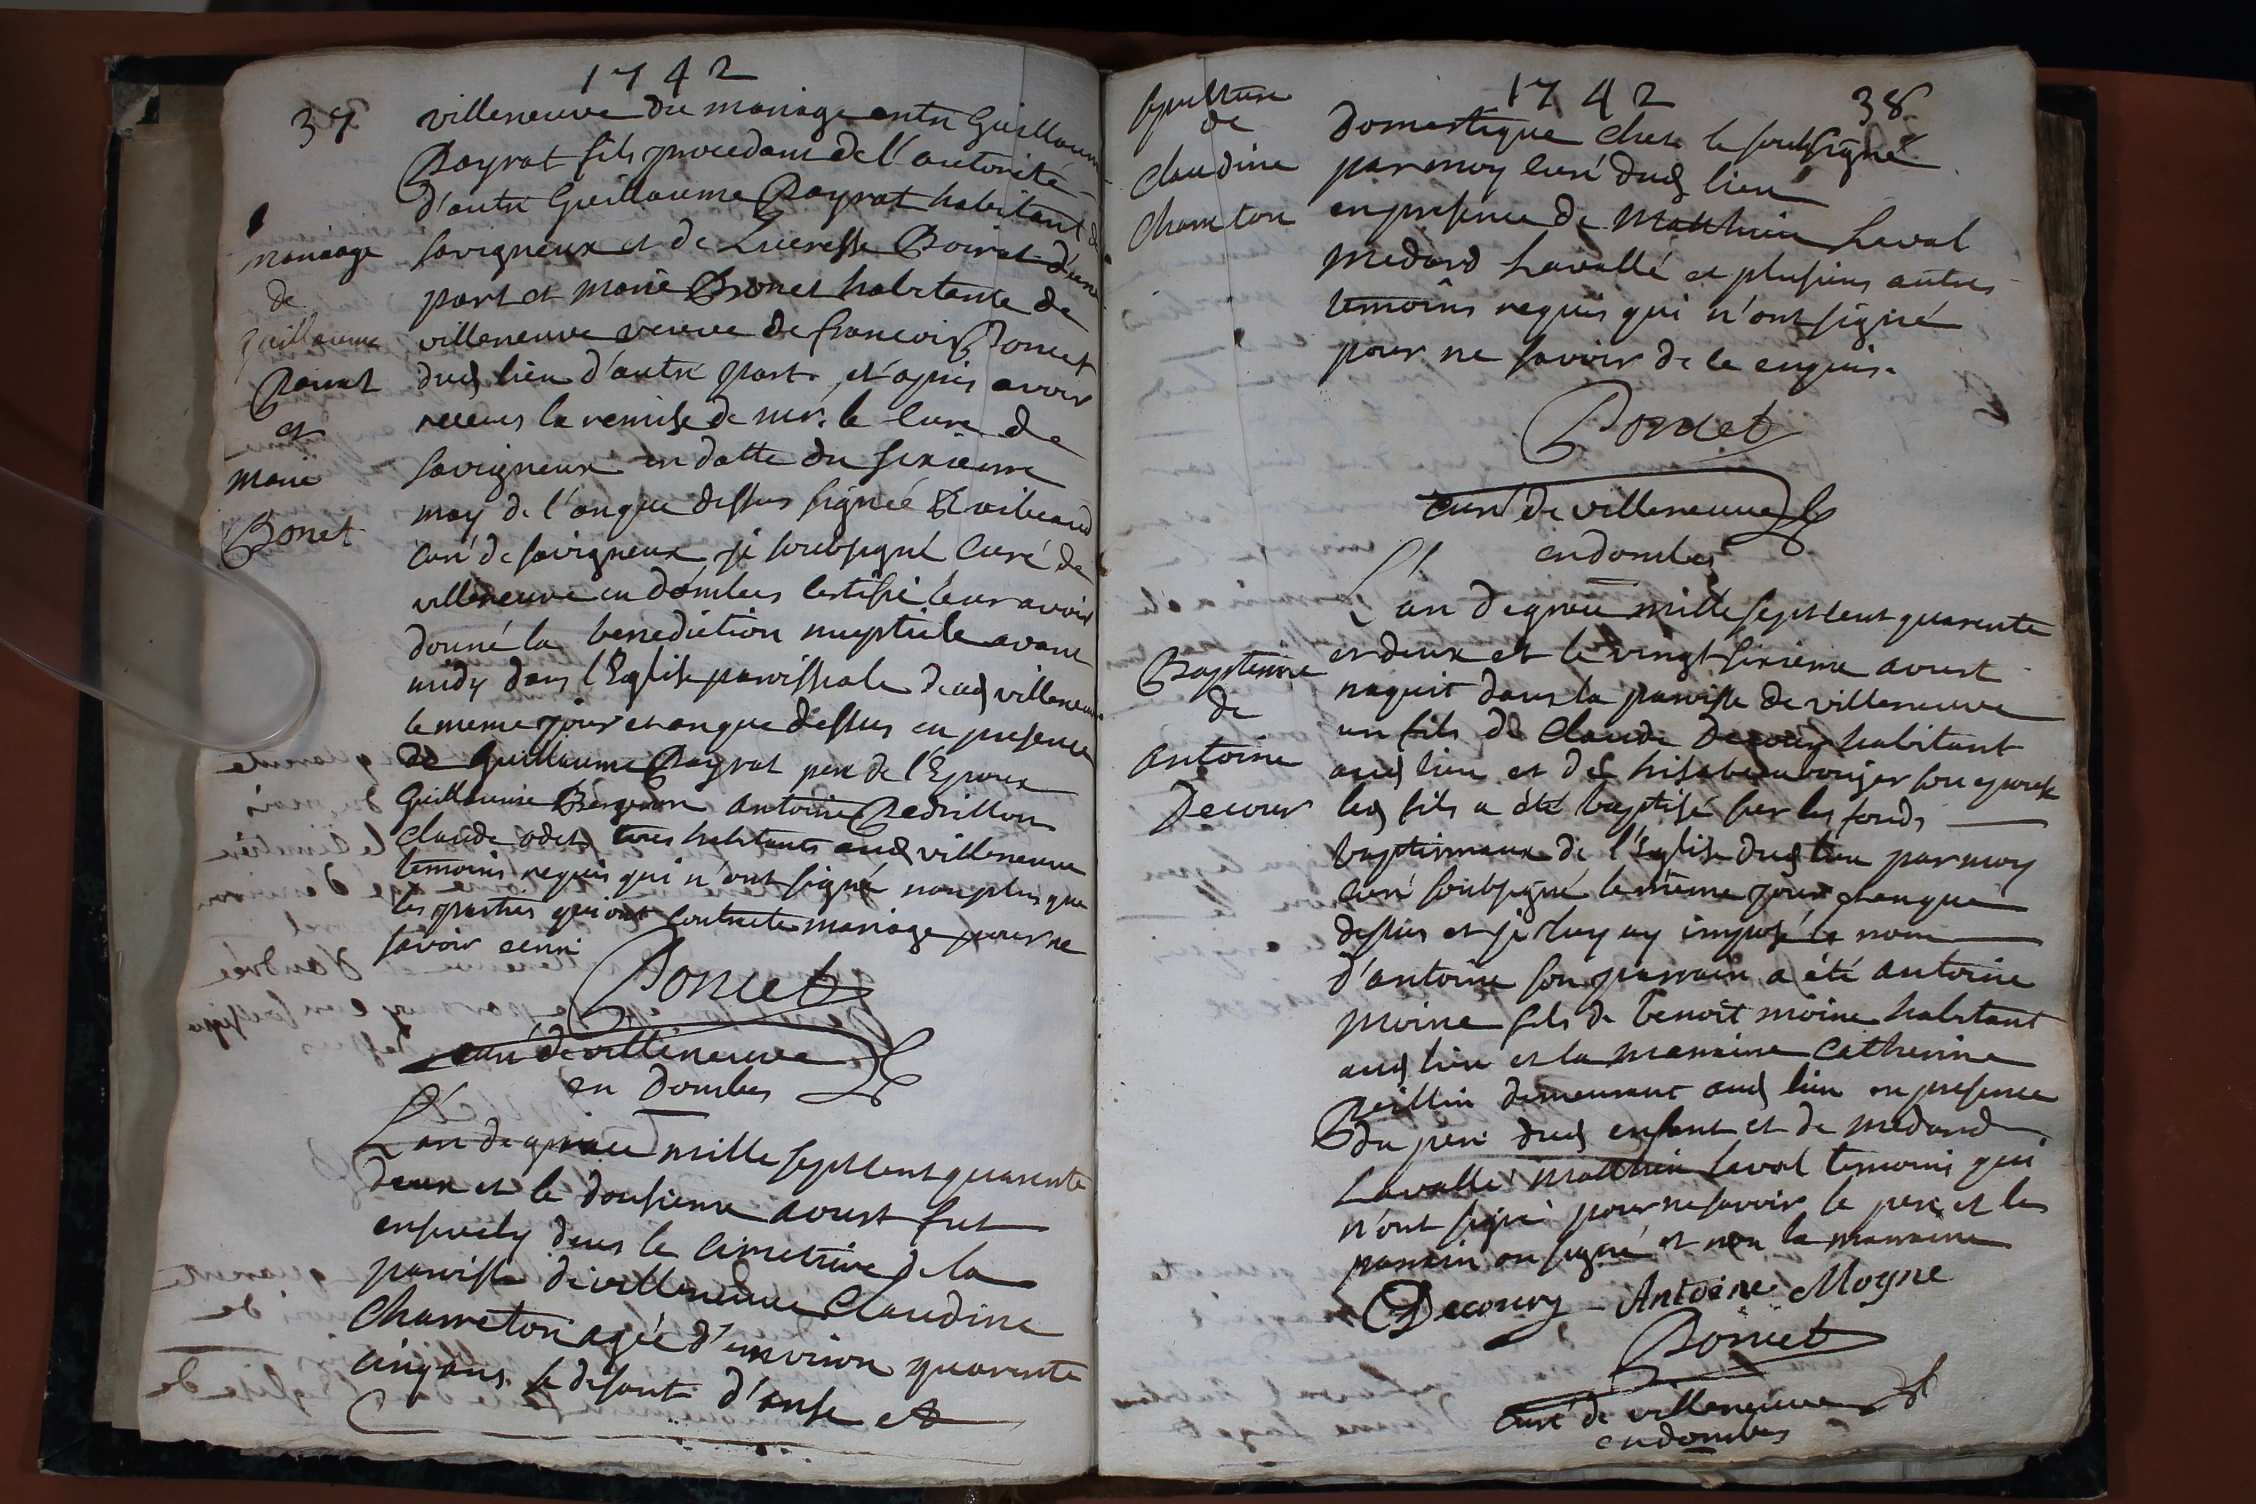 1742
37
villeneuve du mariage entre Guillaume
Payrat fils procedant de l'autorité
d'autre Guillaume Payrat habitant de
savigneux et de Lucresse Boirat d'une
part et marie Bonet habitante de
villeneuve veuve de francois Poncet
dud lieu d'autre part, et apris avoir
receus la remise de mr. le cure de
savigneux en datte du sixieme
may de l'an que dessus signée
curé de savigneux je soubsigné curé de
villeneuve en dombes certifie leur avoir
donné la benediction nuptiale avant
midy dans l'Eglise parroissiale dud villeneuve
le meme jour et an que dessus en presence
de Guillaume Payrat pere de l'Epoux
Guillaume Bergeron antoine Pedrillon
claude odet tous habitants aud villeneuve
temoins requis qui n'ont signé non plus que
les parties qui ont contracté mariage pour ne
savoir ecrire
Poncet
curé de villeneuve
en dombes
mariage
de
guillaume
Pairat
et
marie
Bonet
L'an de grace mille sept cent quarente
deux et le dousieme aoust fut
ensevely dans le cimetiere de la
paroisse de villeneuve Claudine
Charreton agée d'environ quarente
cinq ans la defante d'anse et
1742
38
sepulture
de
claudine
charreton
domestique chese le soubsigné
par moy curé dud lieu
en presence de Matthieu Laval
Medard Lavallé et plusieurs autres
temoins requis qui n'ont signé
pour ne savoir de ce enquis.
Poncet
curé de villeneuve
en dombes
Baptesme
de
antoine
Decour
L'an de grace mille sept cent quarente
et deux et le vingt sixieme aoust
naquit dans la paroisse de villeneuve
un fils de Claude Decour habitant
aud lieu et de son epouse
led fils a été baptisé sur les fonds
baptismaux de l'Eglise dud lieu par moy
curé soubsigné le même jour et an que
dessus et je luy ay imposé le nom
d'antoine son parrain a été antoine
moine fils de benoit moine habitant
aud lieu et la marraine Catherine
demeurant aud lieu en presence
du pere dud enfant et de medard
Lavallé Matthieu Laval temoins qui
n'ont signé pour ne savoir le pere et le
parrain on signé et non la marraine
Decoury - Antoine Moyne
Poncet
curé de villeneuve
en dombes